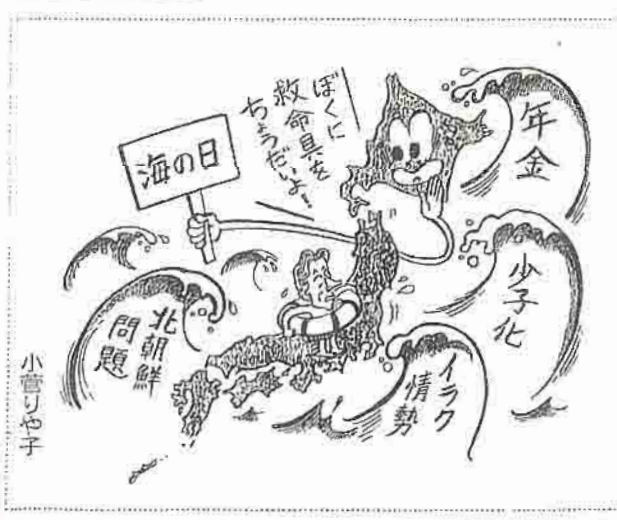 ぼくに
救命具を
ちょうだいよ!
海の日
年金
少子化
イラク
情勢
北朝鮮
問題
小菅りや子